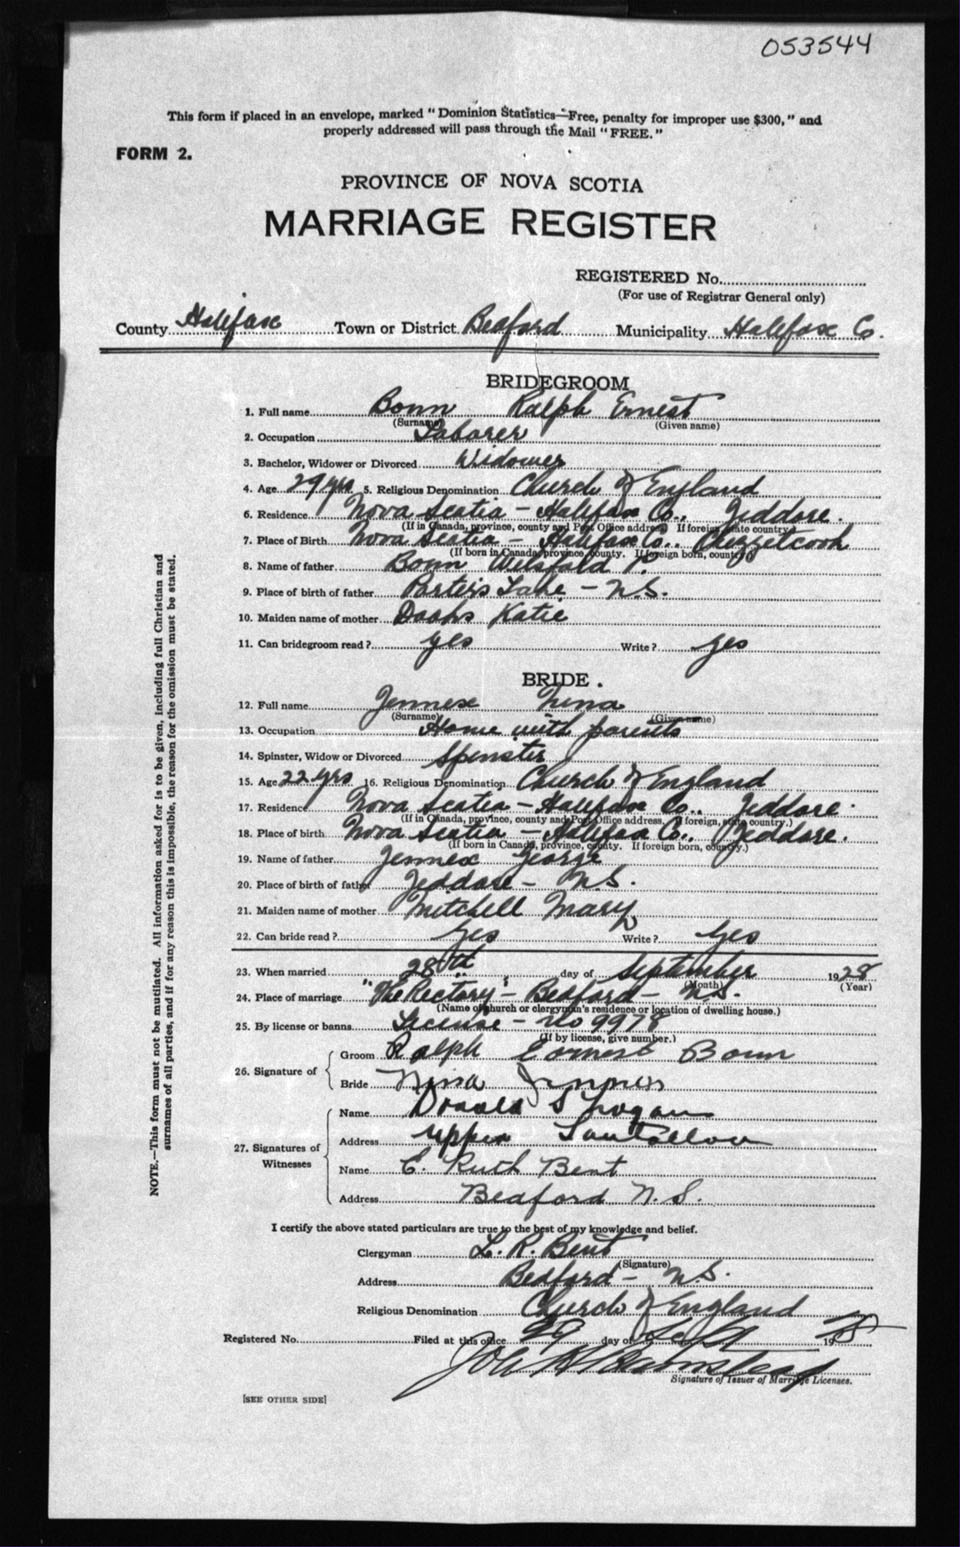 053544
This form if placed in an envelope, marked "Dominion Statistics—Free, penalty for improper use $300," and
properly addressed will pass through the Mail "FREE."
FORM 2.
PROVINCE OF NOVA SCOTIA
MARRIAGE REGISTER
REGISTERED No.
(For use of Registrar General only)
County Halifax Town or District Bedford Municipality Halifax Co.
BRIDEGROOM
1. Full name Bonn Ralph Ernest
(Surname) (Given name)
2. Occupation Laborer
3. Bachelor, Widower or Divorced Widower
4. Age 29 yrs 5. Religious Denomination Church of England
6. Residence Nova Scotia - Halifax Co., Jeddore.
(If in Canada, province, county and Post Office address. If foreign, state country.)
7. Place of Birth Nova Scotia - Halifax Co. Chezzetcook
(If born in Canada, province, county. If foreign born, country.)
8. Name of father Bonn
9. Place of birth of father Porters Lake - N.S.
10. Maiden name of mother Katie
11. Can bridegroom read? yes Write? yes
BRIDE.
12. Full name Jennex Nina
(Surname) (Given name)
13. Occupation Home with parents
14. Spinster, Widow or Divorced Spinster
15. Age 22 yrs 16. Religious Denomination Church of England
17. Residence Nova Scotia - Halifax Co., Jeddore.
(If in Canada, province, county and Post Office address, if foreign, state country.)
18. Place of birth Nova Scotia - Halifax Co., Jeddore.
(If born in Canada, province, county. If foreign born, country.)
19. Name of father Jennex George
20. Place of birth of father Jeddore - N.S.
21. Maiden name of mother Mitchell Mary
22. Can bride read? Yes Write? Yes
23. When married 28th day of September 1928
(Month) (Year)
24. Place of marriage "The Rectory" - Bedford - N.S.
(Name of church or clergyman's residence or location of dwelling house.)
25. By license or banns License - No 9978
(If by license, give number.)
26. Signature of
Groom Ralph Earnest Bonn
Bride Nina Jennex
27. Signatures of Witnesses
Name Donald S Logan
Address Upper
Name C. Ruth Bent
Address Bedford N.S.
I certify the above stated particulars are true to the best of my knowledge and belief.
Clergyman L. R. Bent
(Signature)
Address Bedford - N.S.
Religious Denomination Church of England
Registered No. Filed at this office 29 day of Sept 1928
Signature of Issuer of Marriage Licenses.
[SEE OTHER SIDE]
NOTE.—This form must not be mutilated. All information asked for is to be given, including full Christian and
surnames of all parties, and if for any reason this is impossible, the reason for the omission must be stated.